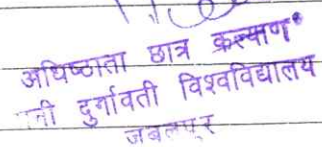 अधिष्ठाता छात्र कल्याण
दुर्गावती विश्वविद्यालय
जबलपुर